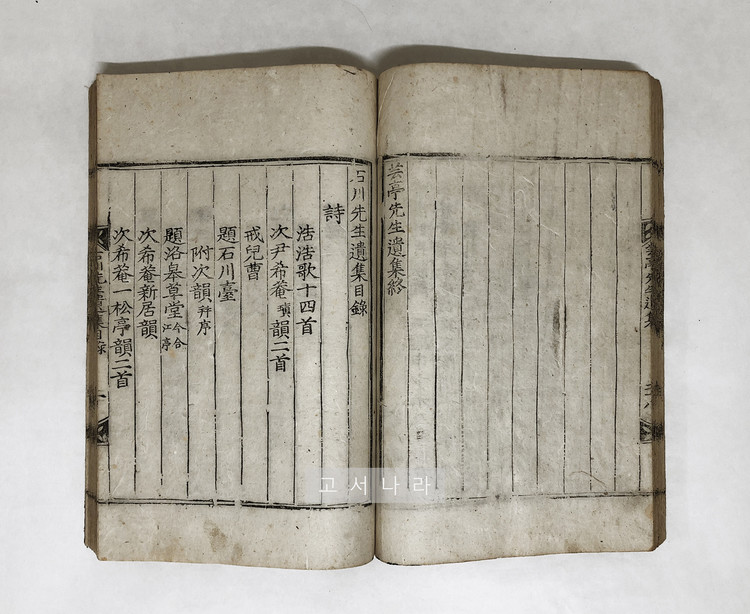 芸亭先生遺集終
石川先生遺集目錄
詩
浩浩歌十四首
次尹希菴韻二首
戒兒曹
題石川臺
附次韻幷序
題洛皋草堂今合江亭
次希菴新居韻
次希菴一松亭韻二首
石川先生遺集目錄
고서나라